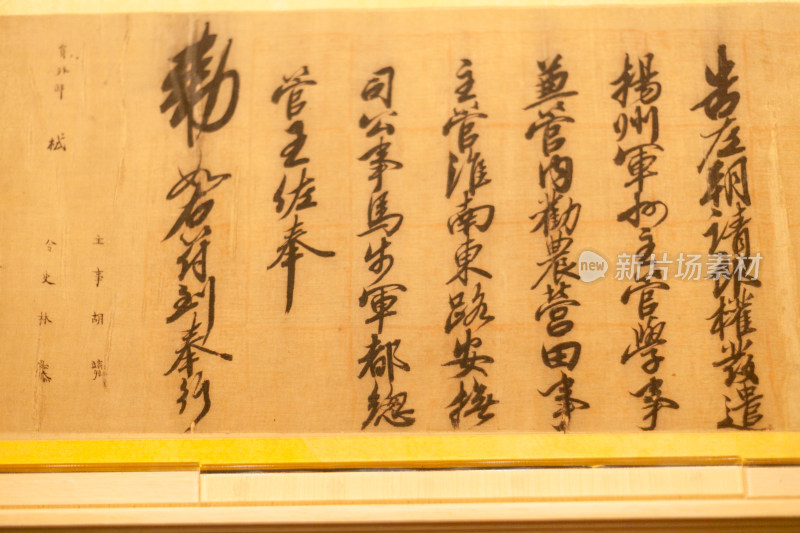 告左朝請郎權發遣
揚州軍州主管學事
兼管內勸農營田事
主管淮南東路安撫
司公事馬步軍都總
管王佐奉
勅如右符到奉行
主事胡
令史林
new 新摄网络科技